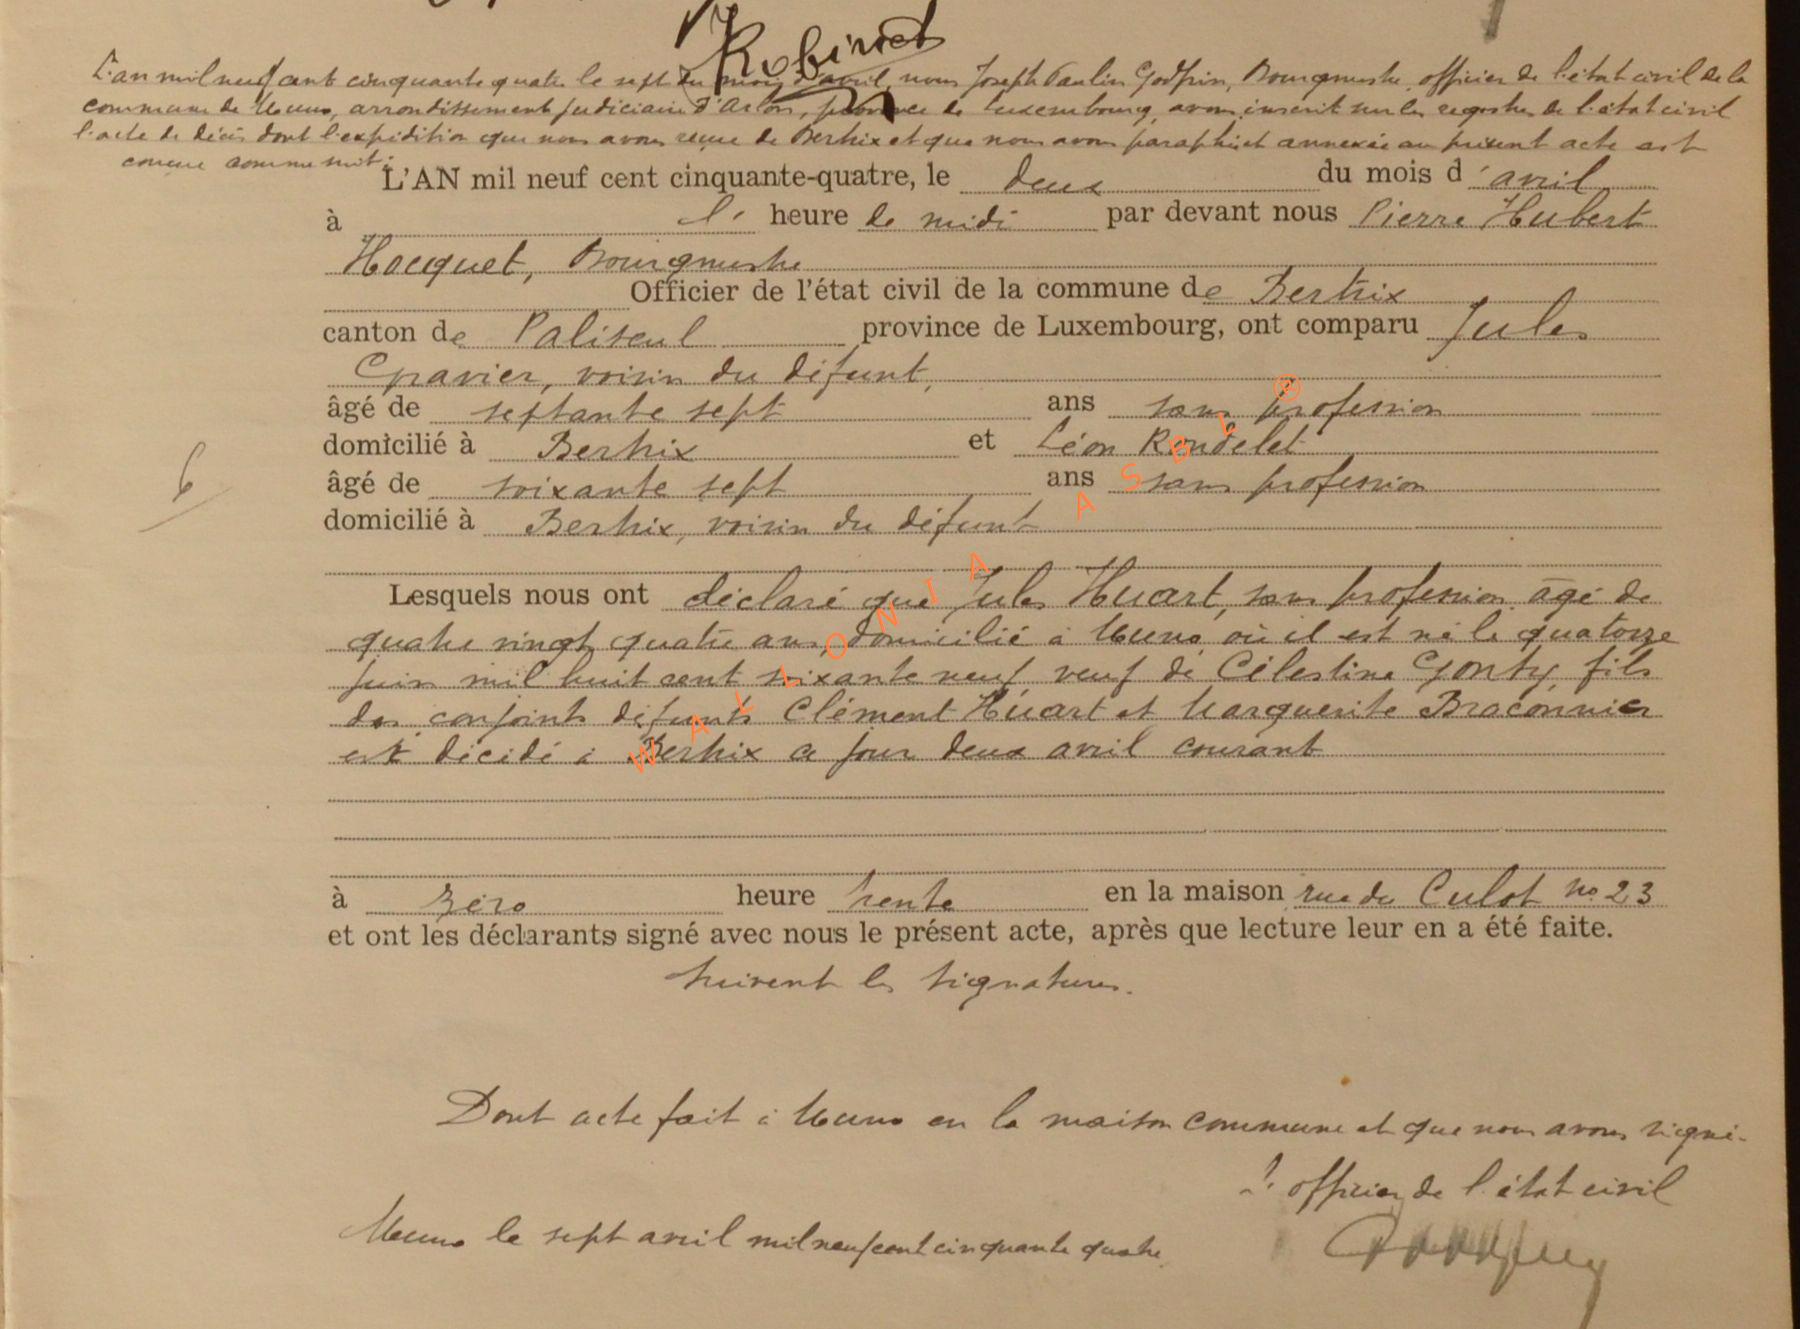 Robinet
L'an mil neuf cent cinquante quatre le sept du mois d'avril, nous Joseph Paulin Godfrin, Bourgmestre, officier de l'état civil de la
commune de Muno, arrondissement judiciaire d'Arlon, province de Luxembourg, avons inscrit sur les registres de l'état civil
l'acte de décès dont l'expédition que nous avons reçue de Bertrix et que nous avons paraphée et annexée au présent acte est
conçue comme suit :
L'AN mil neuf cent cinquante-quatre, le deux du mois d'avril
à l' heure de midi par devant nous Pierre Hubert
Hocquet, Bourgmestre
Officier de l'état civil de la commune de Bertrix
canton de Paliseul province de Luxembourg, ont comparu Jules
Gravier, voisin du défunt,
âgé de septante sept ans sans profession
domicilié à Bertrix et Léon Rondelet
âgé de soixante sept ans sans profession
domicilié à Bertrix, voisin du défunt
6
Lesquels nous ont déclaré que Jules Huart, sans profession, âgé de
quatre vingt quatre ans, domicilié à Muno où il est né le quatorze
juin mil huit cent soixante neuf, veuf de Célestine Gonty, fils
des conjoints défunts Clément Huart et Marguerite Braconnier
est décédé à Bertrix ce jour deux avril courant
à zéro heure trente en la maison rue du Culot no 23
et ont les déclarants signé avec nous le présent acte, après que lecture leur en a été faite.
Suivent les signatures.
Dont acte fait à Muno en la maison commune et que nous avons signé.
L'officier de l'état civil
Muno le sept avril mil neuf cent cinquante quatre
WALLONIA ASBL ®